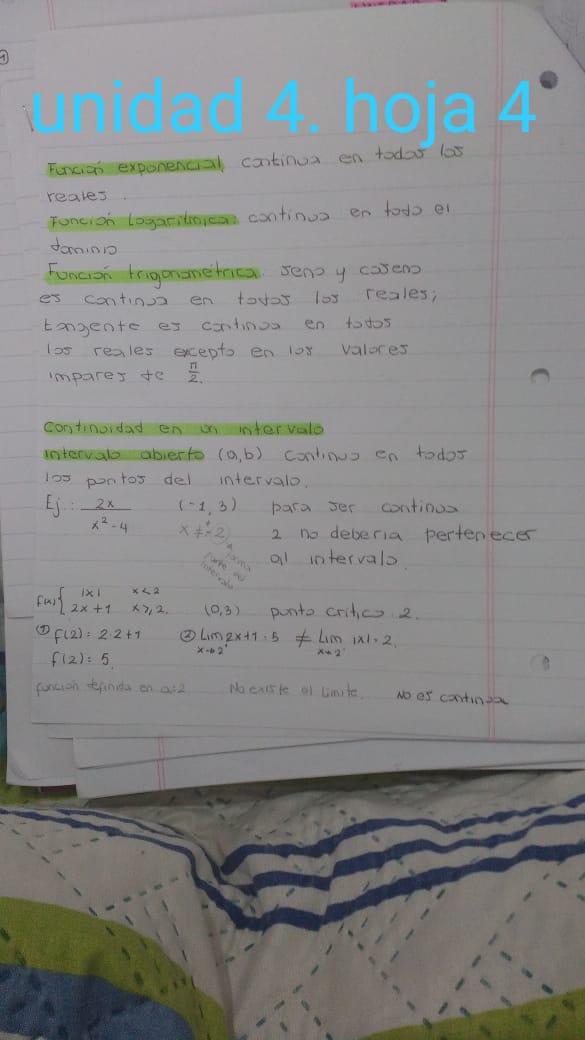 unidad 4. hoja 4
Función exponencial, continua en todos los
reales.
Función Logarítmica: continua en todo el
dominio
Función trigonométrica. seno y coseno
es continua en todos los reales;
tangente es continua en todos
los reales excepto en los valores
impares de π/2.
Continuidad en un intervalo
intervalo abierto (a,b) continua en todos
los puntos del intervalo.
Ej.: 2x / x²-4 (-1, 3) para ser continua
2 no deberia pertenecer
al intervalo.
f(x){ |x| x<2
2x+1 x≥2. (0,3) punto crítico: 2.
① f(2)= 2.2+1 ② Lim 2x+1=5 ≠ Lim |x|=2.
x→2⁺ x→2⁻
f(2)= 5.
función definida en a=2 No existe el Límite. NO es continua